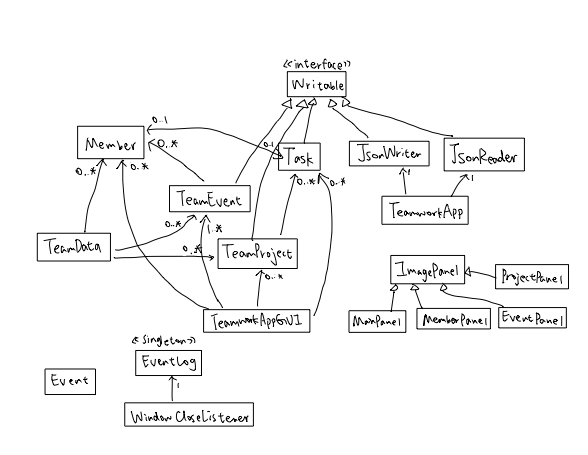 <<interface>>
Writable
0..1
Member
0..*
0..1
Task
JsonWriter
JsonReader
0..*
0..*
0..*
0..*
1
1
TeamEvent
TeamworkApp
0..*
1..*
TeamData
0..*
TeamProject
ImagePanel
ProjectPanel
0..*
TeamworkAppGUI
MainPanel
MemberPanel
EventPanel
<<Singleton>>
EventLog
Event
1
WindowCloseListener